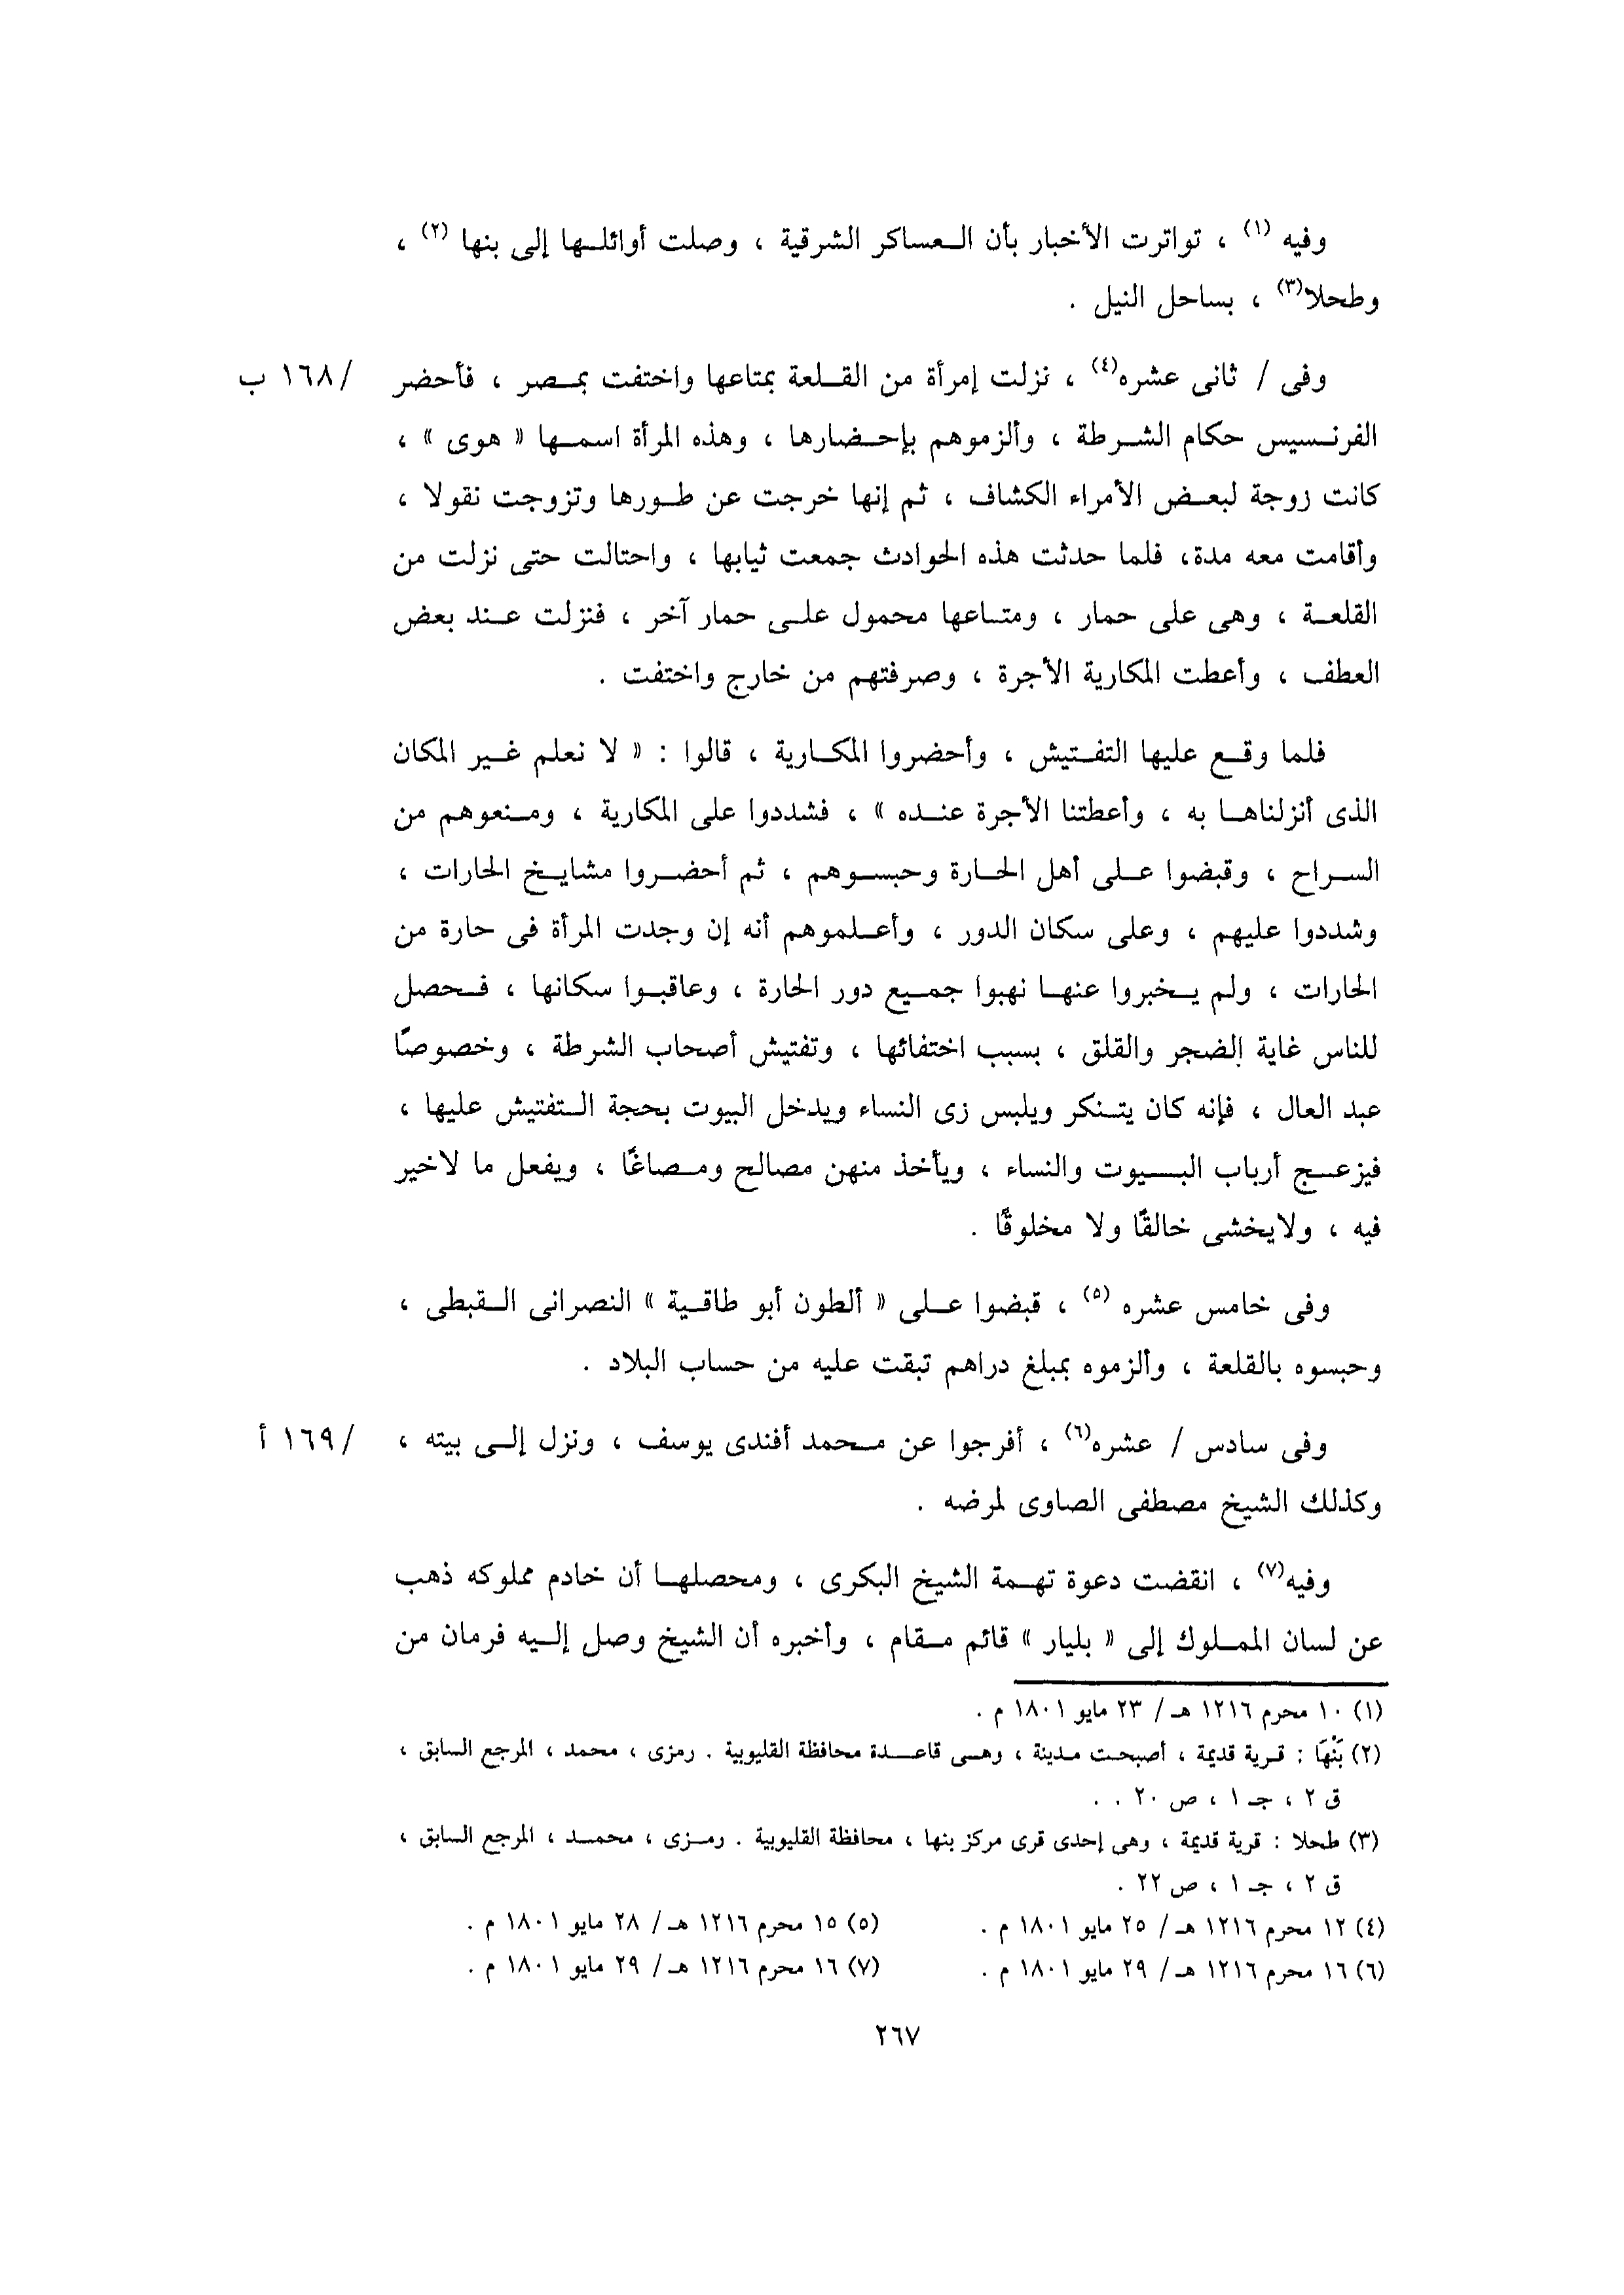 وفيه (١) ، تواترت الأخبار بأن العساكر الشرقية ، وصلت أوائلها إلى بنها (٢) ،
وطحلا(٣) ، بساحل النيل .
وفى / ثانى عشره(٤) ، نزلت إمرأة من القلعة بمتاعها واختفت بمصر ، فأحضر /١٦٨ ب
الفرنسيس حكام الشرطة ، وألزموهم بإحضارها ، وهذه المرأة اسمها « هوى » ،
كانت زوجة لبعض الأمراء الكشاف ، ثم إنها خرجت عن طورها وتزوجت نقولا ،
وأقامت معه مدة، فلما حدثت هذه الحوادث جمعت ثيابها ، واحتالت حتى نزلت من
القلعة ، وهى على حمار ، ومتاعها محمول على حمار آخر ، فنزلت عند بعض
العطف ، وأعطت المكارية الأجرة ، وصرفتهم من خارج واختفت .
فلما وقع عليها التفتيش ، وأحضروا المكارية ، قالوا : « لا نعلم غير المكان
الذى أنزلناها به ، وأعطتنا الأجرة عنده » ، فشددوا على المكارية ، ومنعوهم من
السراح ، وقبضوا على أهل الحارة وحبسوهم ، ثم أحضروا مشايخ الحارات ،
وشددوا عليهم ، وعلى سكان الدور ، وأعلموهم أنه إن وجدت المرأة فى حارة من
الحارات ، ولم يخبروا عنها نهبوا جميع دور الحارة ، وعاقبوا سكانها ، فحصل
للناس غاية الضجر والقلق ، بسبب اختفائها ، وتفتيش أصحاب الشرطة ، وخصوصًا
عبد العال ، فإنه كان يتنكر ويلبس زى النساء ويدخل البيوت بحجة التفتيش عليها ،
فيزعج أرباب البيوت والنساء ، ويأخذ منهن مصالح ومصاغًا ، ويفعل ما لاخير
فيه ، ولايخشى خالقًا ولا مخلوقًا .
وفى خامس عشره (٥) ، قبضوا على « ألطون أبو طاقية » النصرانى القبطى ،
وحبسوه بالقلعة ، وألزموه بمبلغ دراهم تبقت عليه من حساب البلاد .
وفى سادس / عشره(٦) ، أفرجوا عن محمد أفندى يوسف ، ونزل إلى بيته ، /١٦٩ أ
وكذلك الشيخ مصطفى الصاوى لمرضه .
وفيه(٧) ، انقضت دعوة تهمة الشيخ البكرى ، ومحصلها أن خادم مملوكه ذهب
عن لسان المملوك إلى « بليار » قائم مقام ، وأخبره أن الشيخ وصل إليه فرمان من
(١) ١٠ محرم ١٢١٦ هـ / ٢٣ مايو ١٨٠١ م .
(٢) بَنْهَا : قرية قديمة ، أصبحت مدينة ، وهى قاعدة محافظة القليوبية . رمزى ، محمد ، المرجع السابق ،
ق ٢ ، جـ ١ ، ص ٢٠ . .
(٣) طحلا : قرية قديمة ، وهى إحدى قرى مركز بنها ، محافظة القليوبية . رمزى ، محمد ، المرجع السابق ،
ق ٢ ، جـ ١ ، ص ٢٢ .
(٤) ١٢ محرم ١٢١٦ هـ / ٢٥ مايو ١٨٠١ م . (٥) ١٥ محرم ١٢١٦ هـ / ٢٨ مايو ١٨٠١ م .
(٦) ١٦ محرم ١٢١٦ هـ / ٢٩ مايو ١٨٠١ م . (٧) ١٦ محرم ١٢١٦ هـ / ٢٩ مايو ١٨٠١ م .
٢٦٧